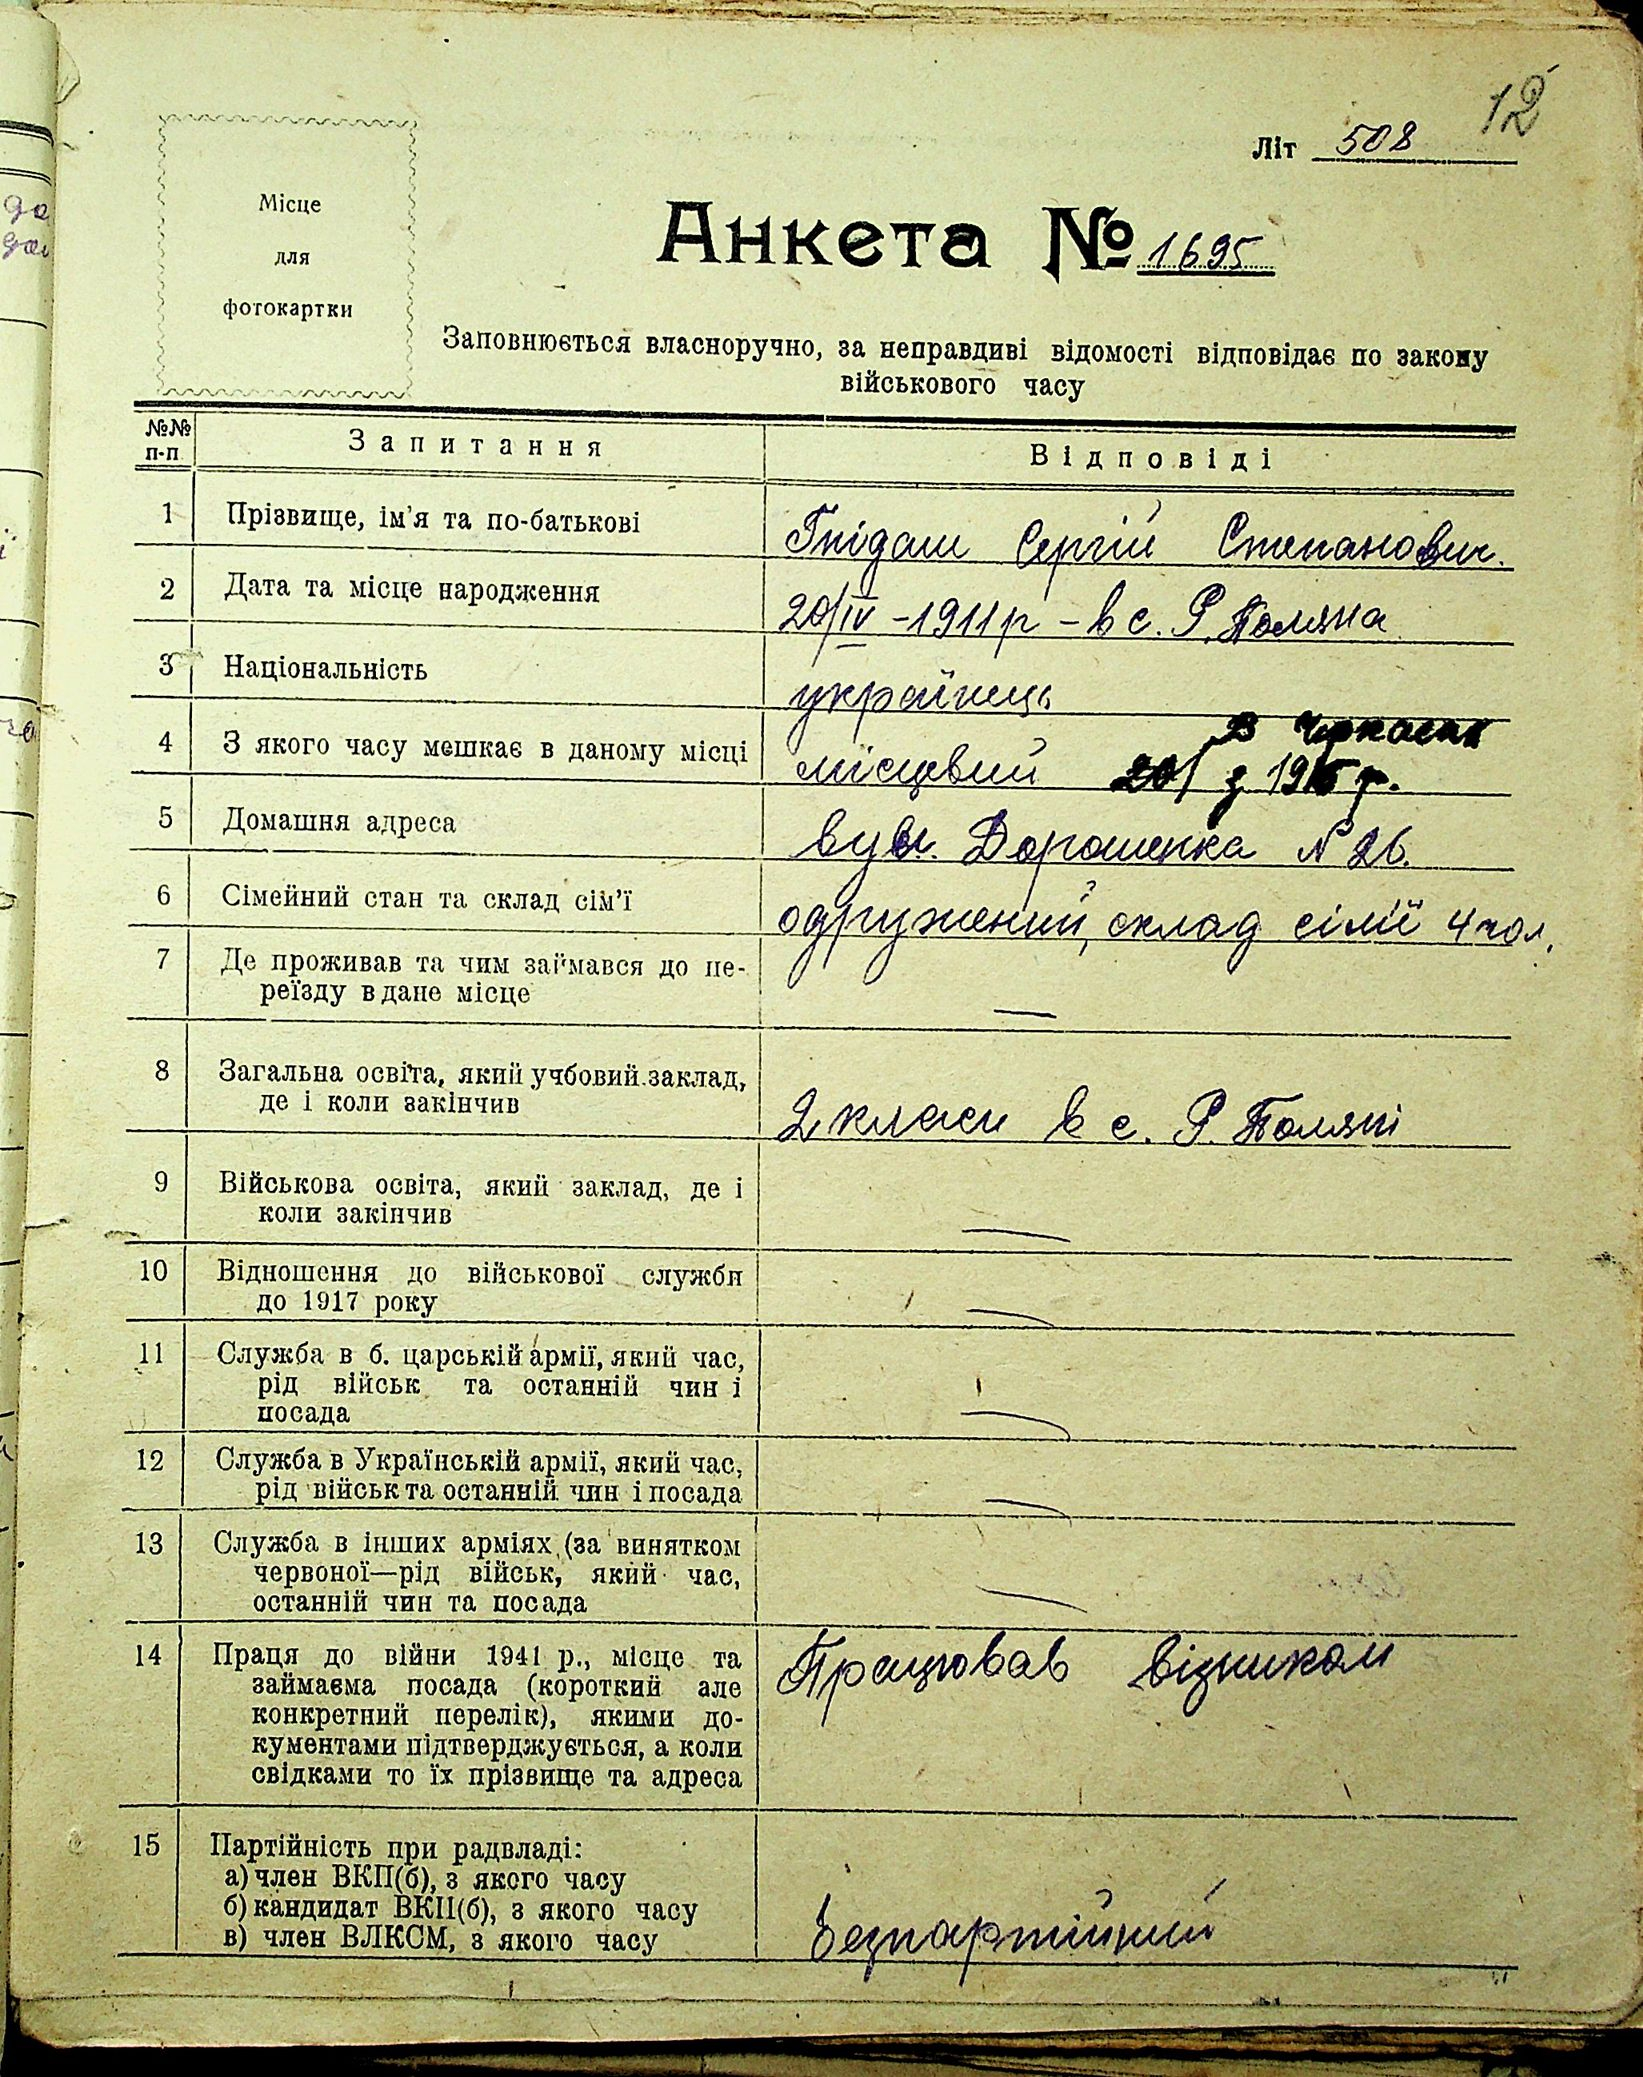 12
Літ 508
Місце
для
фотокартки
Анкета № 1695
Заповнюється власноручно, за неправдиві відомості відповідає по закону
військового часу
№№ п-п Запитання Відповіді
1 Прізвище, ім'я та по-батькові Гнідаш Сергій Степанович.
2 Дата та місце народження 20/IV – 1911 р – в с. Р. Поляна
3 Національність українець
В Черкасах
4 З якого часу мешкає в даному місці місцевий з р.
5 Домашня адреса вул. Дорошенка № 26.
6 Сімейний стан та склад сім'ї одружений, склад сімії 4 чол.
7 Де проживав та чим займався до пе-
реїзду в дане місце —
8 Загальна освіта, який учбовий заклад,
де і коли закінчив 2 класи в с. Р. Поляні
9 Військова освіта, який заклад, де і
коли закінчив —
10 Відношення до військової служби
до 1917 року —
11 Служба в б. царській армії, який час,
рід військ та останній чин і
посада —
12 Служба в Українській армії, який час,
рід військ та останній чин і посада —
13 Служба в інших арміях (за винятком
червоної—рід військ, який час,
останній чин та посада —
14 Праця до війни 1941 р., місце та Працював візником
займаєма посада (короткий але
конкретний перелік), якими до-
кументами підтверджується, а коли
свідками то їх прізвище та адреса
15 Партійність при радвладі:
а) член ВКП(б), з якого часу
б) кандидат ВКП(б), з якого часу
в) член ВЛКСМ, з якого часу безпартійний